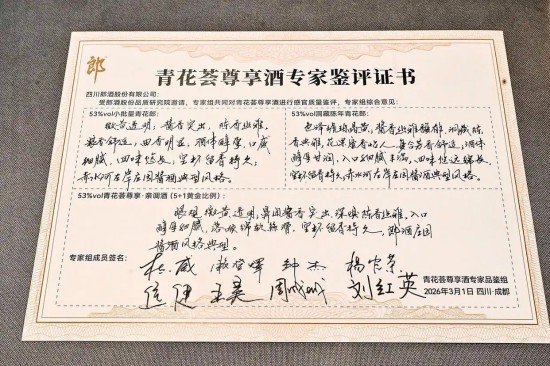 郎
青花荟尊享酒专家鉴评证书
四川郎酒股份有限公司:
受郎酒股份品质研究院邀请,专家组共同对青花荟尊享酒进行感官质量鉴评,专家组综合意见:
53%vol小批量青花郎:
微黄透明,酱香突出,陈香幽雅,
四香明显,顺体醇厚,口感
细腻,回味悠长,空杯留香持久,
赤水河左岸庄园酱酒典型风格。
53%vol洞藏陈年青花郎:
酱香幽雅馥郁,洞藏陈
香典雅,花果蜜香
醇厚甘润,入口细腻丰满,回味悠远绵长,
空杯留香持久,赤水河左岸庄园酱酒典型风格。
53%vol青花荟尊享·亲调酒(5+1黄金比例):
微黄透明,鼻闻酱香突出,陈香幽雅,入口
醇厚细腻,落喉绵软丝滑,空杯留香持久,郎酒庄园
酱酒风格典型。
专家组成员签名:
杜威 钟杰
王昊 周城城 刘红英
青花荟尊享酒专家品鉴组
2026年3月1日 四川·成都